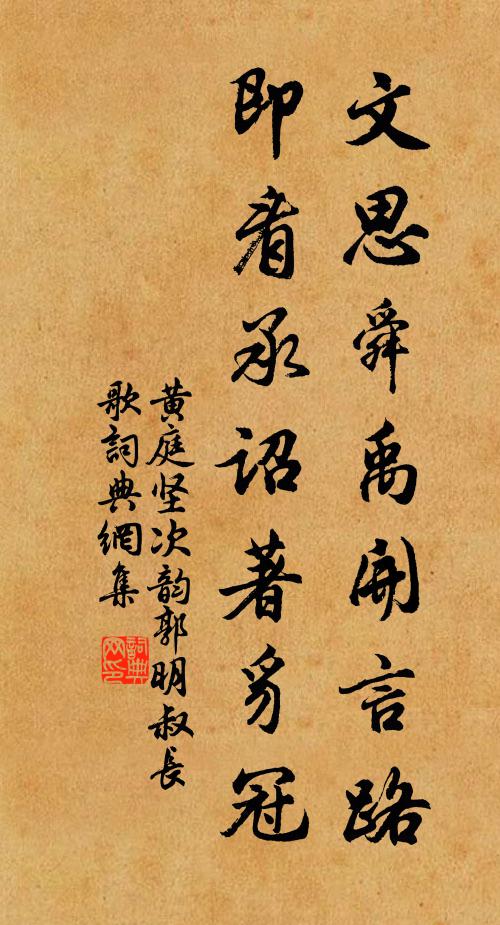 文思舜禹開言路
即看承詔著豸冠
黄庭坚次韵郭明叔長
歌詞典網集
詞典网印